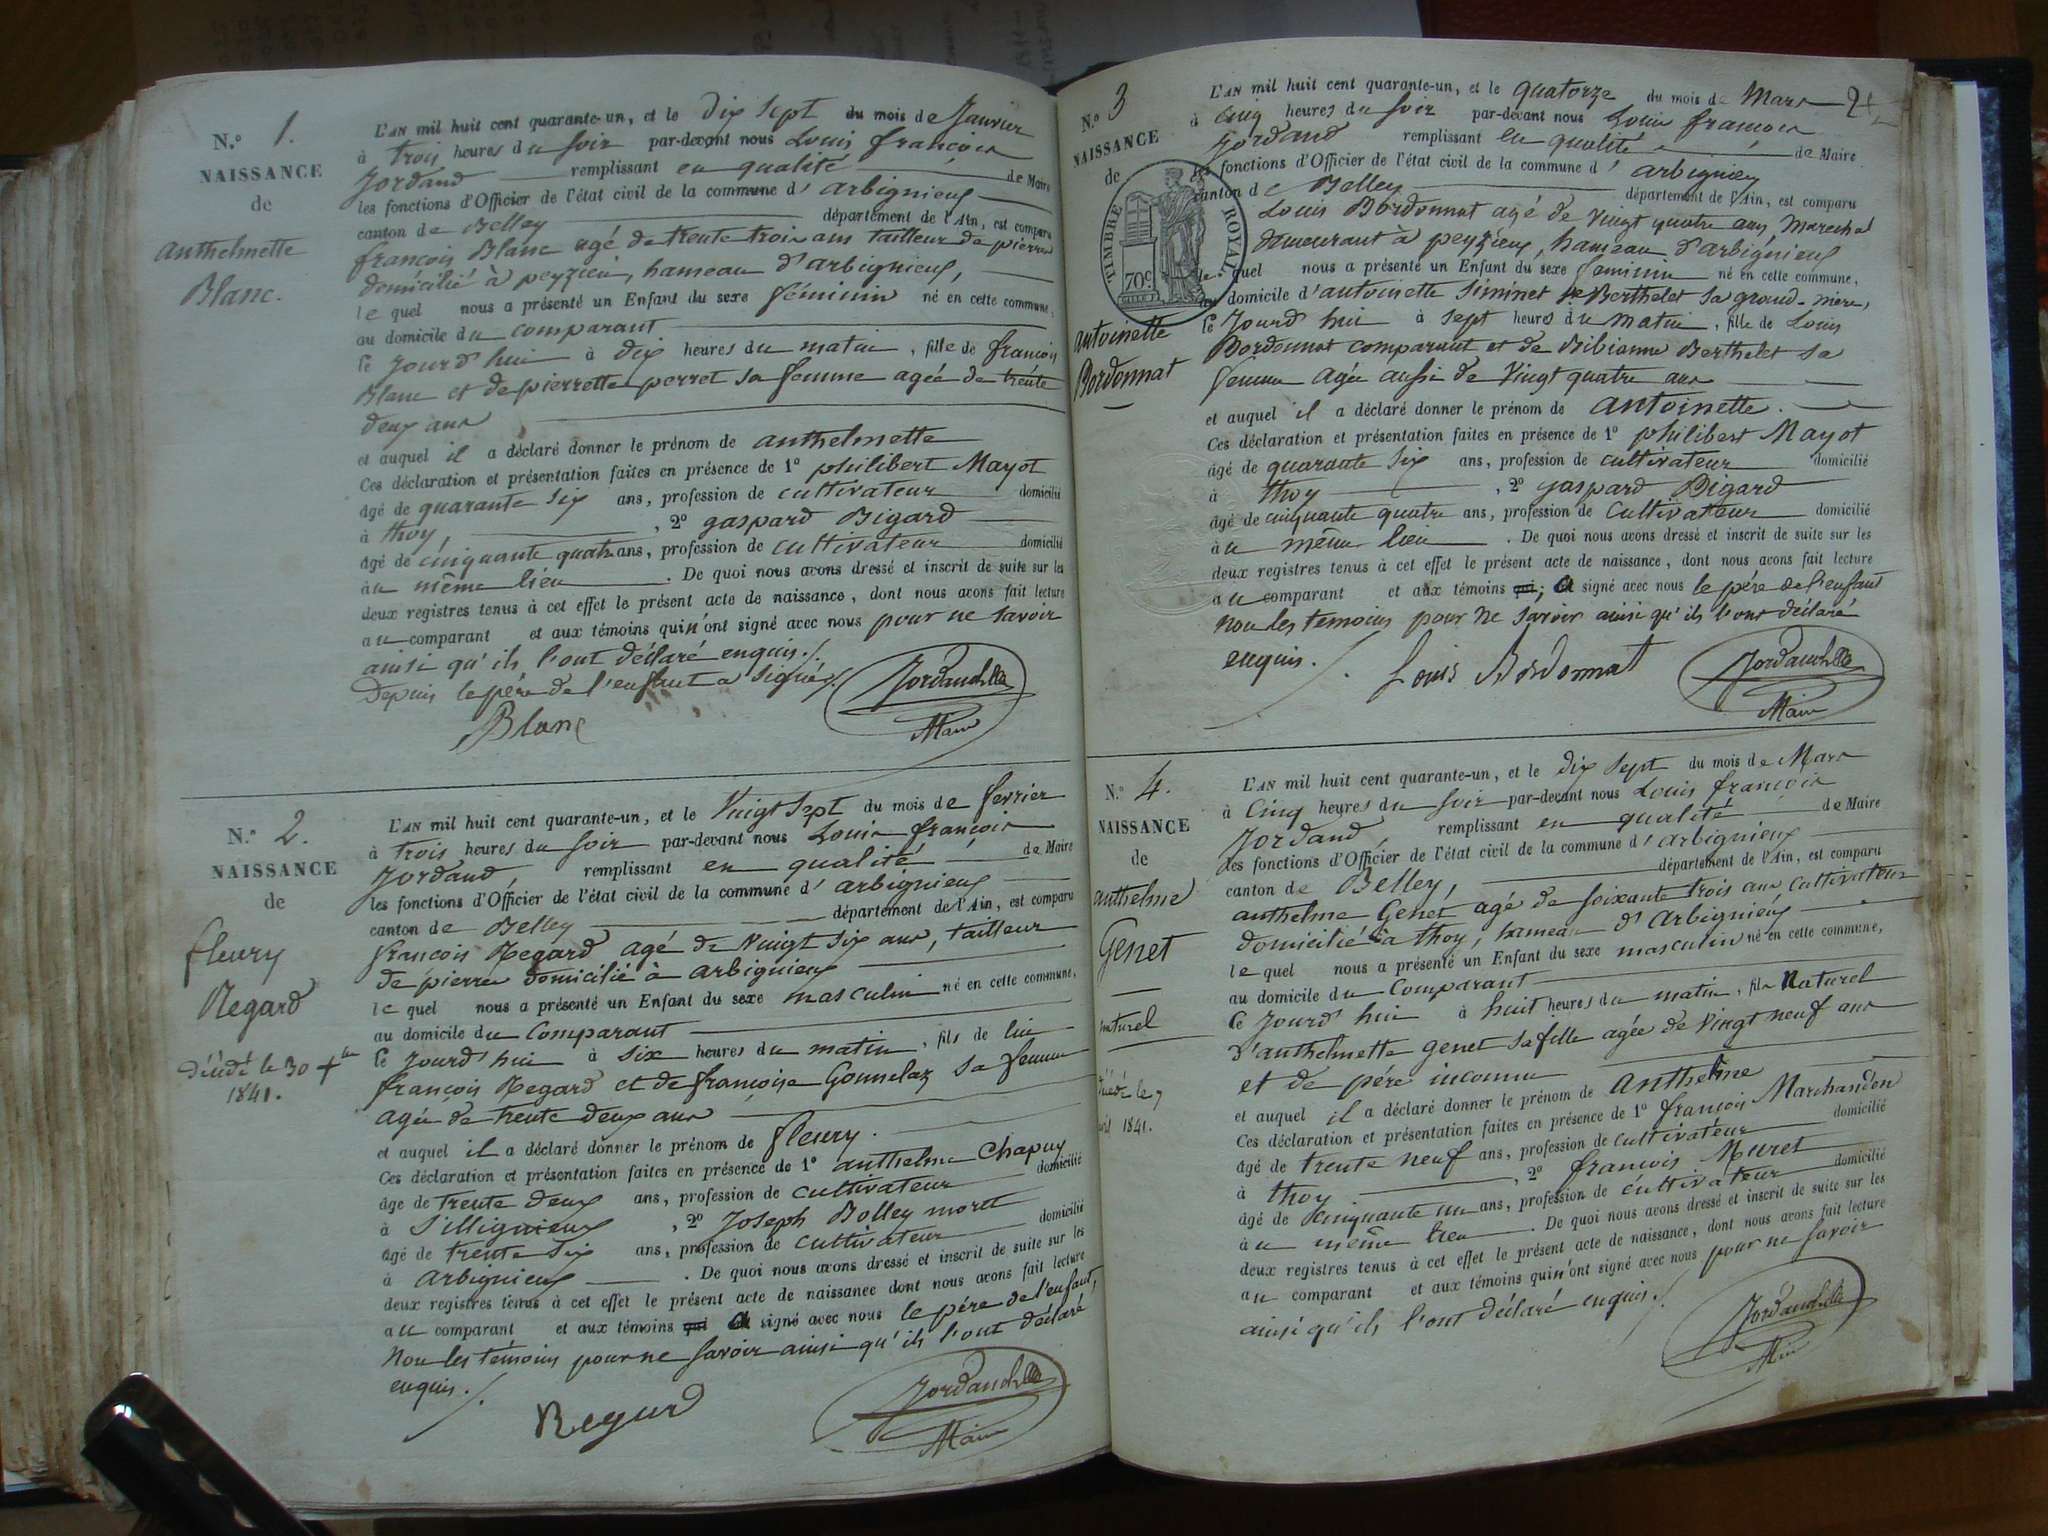 N.º 1.
NAISSANCE
de
anthelmette
Blanc.
L'AN mil huit cent quarante-un, et le dix sept du mois de Janvier
à trois heures du soir par-devant nous Louis françois
Jordand remplissant en qualité de Maire
les fonctions d'Officier de l'état civil de la commune d'arbignieux
canton de Belley département de l'Ain, est comparu
françois Blanc agé de trente trois ans tailleur de pierre
domicilié à peyzieu, hameau d'arbignieux,
le quel nous a présenté un Enfant du sexe féminin né en cette commune,
au domicile du comparant
ce Jourd'hui à dix heures du matin, fille de françois
Blanc et de pierrette perret sa femme agée de trente
deux ans
et auquel il a déclaré donner le prénom de anthelmette
Ces déclaration et présentation faites en présence de 1º philibert Mayot
âgé de quarante six ans, profession de cultivateur domicilié
à thoy, , 2º gaspard Bigard
âgé de cinquante quatre ans, profession de cultivateur domicilié
au même lieu . De quoi nous avons dressé et inscrit de suite sur les
deux registres tenus à cet effet le présent acte de naissance, dont nous avons fait lecture
au comparant et aux témoins qui n'ont signé avec nous pour ne savoir
ainsi qu'ils l'ont déclaré enquis./.
Depuis le père de l'enfant a signé/.
Blanc
Maire
N.º 2.
NAISSANCE
de
fleury
Regard
décédé le 30
1841.
L'AN mil huit cent quarante-un, et le Vingt sept du mois de fevrier
à trois heures du soir par-devant nous Louis françois
Jordand, remplissant en qualité de Maire
les fonctions d'Officier de l'état civil de la commune d'arbignieux
canton de Belley département de l'Ain, est comparu
françois Regard agé de Vingt six ans, tailleur
de pierre domicilié à arbignieux
le quel nous a présenté un Enfant du sexe masculin né en cette commune,
au domicile du Comparant
ce Jourd'hui à six heures du matin, fils de lui
françois Regard et de françoise Gonnelaz sa femme
agée de trente deux ans
et auquel il a déclaré donner le prénom de fleury.
Ces déclaration et présentation faites en présence de 1º anthelme Chapuy
âge de trente deux ans, profession de cultivateur domicilié
à Sillignieux , 2º Joseph Bolley moret
âgé de trente six ans, profession de cultivateur domicilié
à arbignieux . De quoi nous avons dressé et inscrit de suite sur les
deux registres tenus à cet effet le présent acte de naissance dont nous avons fait lecture
au comparant et aux témoins qui a signé avec nous le père de l'enfant,
Non les témoins pour ne savoir ainsi qu'ils l'ont déclaré
enquis./.
Regard
Maire
N.º 3
NAISSANCE
de
TIMBRE ROYAL.
70 c.
antoinette
Bordonnat
L'AN mil huit cent quarante-un, et le quatorze du mois de Mars
à cinq heures du soir par-devant nous Louis françois
Jordand remplissant en qualité de Maire
les fonctions d'Officier de l'état civil de la commune d'arbignieu
canton de Belley département de l'Ain, est comparu
Louis Bordonnat agé de vingt quatre ans, Marechal
demeurant à peyzieux, hameau d'arbignieux
le quel nous a présenté un Enfant du sexe feminin né en cette commune,
au domicile d'antoinette Siminet Berthelet sa grand-mère,
ce Jourd'hui à sept heures du matin, fille de Louis
Bordonnat comparant et de Bibianne Berthelet sa
femme agée aussi de Vingt quatre ans
et auquel il a déclaré donner le prénom de antoinette.
Ces déclaration et présentation faites en présence de 1º philibert Mayot
âgé de quarante six ans, profession de cultivateur domicilié
à thoy , 2º gaspard Bigard
âgé de cinquante quatre ans, profession de cultivateur domicilié
au même lieu . De quoi nous avons dressé et inscrit de suite sur les
deux registres tenus à cet effet le présent acte de naissance, dont nous avons fait lecture
au comparant et aux témoins qui; a signé avec nous le père de l'enfant
non les temoins pour ne savoir ainsi qu'ils l'ont déclaré
enquis./.
Louis Bordonnat
Maire
N.º 4.
NAISSANCE
de
anthelme
Genet
naturel
1841.
L'AN mil huit cent quarante-un, et le dix sept du mois de Mars
à Cinq heures du soir par-devant nous Louis françois
Jordand, remplissant en qualité de Maire
les fonctions d'Officier de l'état civil de la commune d'arbignieux
canton de Belley, département de l'Ain, est comparu
anthelme Genet agé de soixante trois ans cultivateur
domicilié à thoy, hameau d'Arbignieux
le quel nous a présenté un Enfant du sexe masculin né en cette commune,
au domicile du Comparant
ce Jourd'hui à huit heures du matin, fils Naturel
d'anthelmette genet sa fille agée de Vingt neuf ans
et de père inconnu
et auquel il a déclaré donner le prénom de Anthelme
Ces déclaration et présentation faites en présence de 1º françois Marchandon
âgé de trente neuf ans, profession de cultivateur domicilié
à thoy. , 2º françois Muret
âgé de cinquante un ans, profession de cultivateur domicilié
au même lieu . De quoi nous avons dressé et inscrit de suite sur les
deux registres tenus à cet effet le présent acte de naissance, dont nous avons fait lecture
au comparant et aux témoins qui n'ont signé avec nous pour ne savoir
ainsi qu'ils l'ont déclaré enquis./.